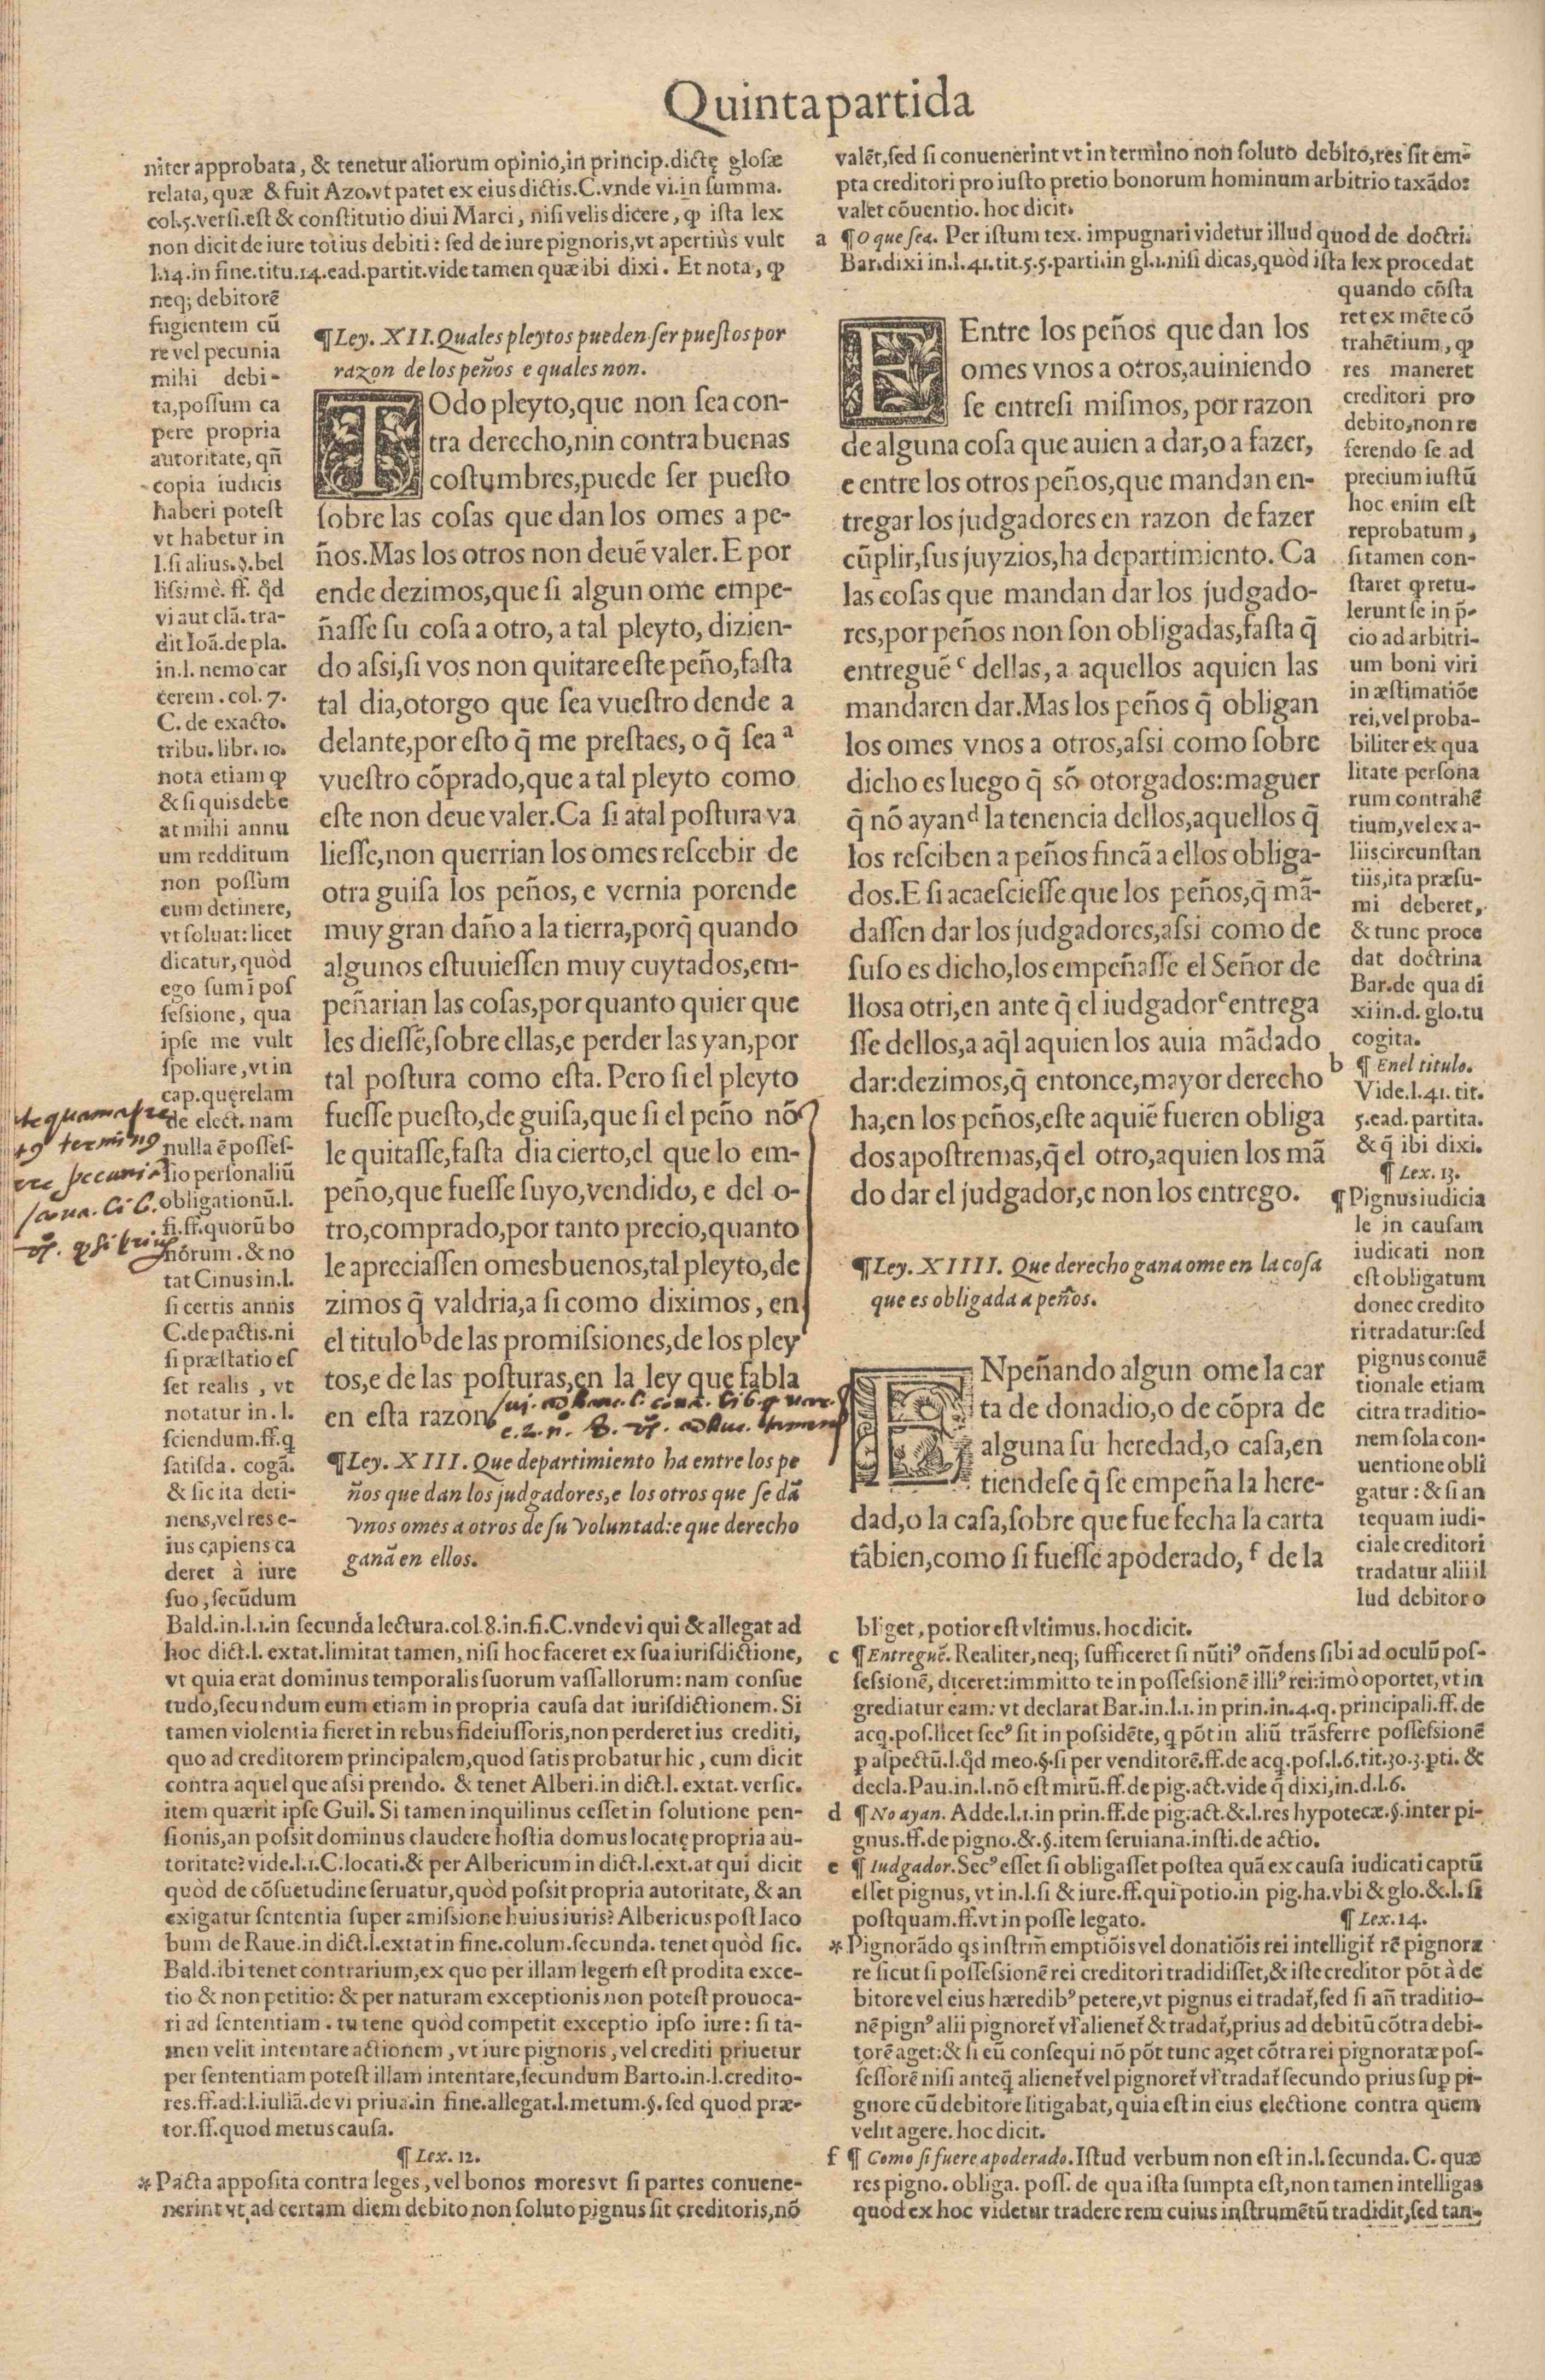 Quinta partida
niter approbata, & tenetur aliorum opinio, in princip. dictę glosæ
relata, quæ & fuit Azo. vt patet ex eius dictis. C. vnde vi. in summa.
col. 5. versi. est & constitutio diui Marci, nisi velis dicere, ꝙ ista lex
non dicit de iure totius debiti: sed de iure pignoris, vt apertiùs vult
l. 14. in fine. titu. 14. ead. partit. vide tamen quæ ibi dixi. Et nota, ꝙ
neq; debitorẽ
fugientem cũ
re vel pecunia
mihi debi-
ta, possum ca
pere propria
autoritate, qñ
copia iudicis
haberi potest
vt habetur in
l. si alius. §. bel
lissimè. ff. q̃d
vi aut clã. tra-
dit Ioã. de pla.
in. l. nemo car
cerem. col. 7.
C. de exacto.
tribu. libr. 10.
nota etiam ꝙ
& si quis debe
at mihi annu
um redditum
non possum
eum detinere,
vt soluat: licet
dicatur, quòd
ego sum ĩ pos
sessione, qua
ipse me vult
spoliare, vt in
cap. quęrelam
de elect. nam
nulla ẽ posses-
sio personaliũ
obligationũ. l.
fi. ff. quorũ bo
norum. & no
tat Cinus in. l.
si certis annis
C. de pactis. ni
si præstatio es
set realis, vt
notatur in. l.
sciendum. ff. q
satisda. cogã.
& sic ita deti-
nens, vel res e-
ius capiens ca
deret à iure
suo, secũdum
Bald. in. l. 1. in secunda lectura. col. 8. in. fi. C. vnde vi qui & allegat ad
hoc dict. l. extat. limitat tamen, nisi hoc faceret ex sua iurisdictione,
vt quia erat dominus temporalis suorum vassallorum: nam consue
tudo, secundum eum etiam in propria causa dat iurisdictionem. Si
tamen violentia fieret in rebus fideiussoris, non perderet ius crediti,
quo ad creditorem principalem, quod satis probatur hic, cum dicit
contra aquel que assi prendo. & tenet Alberi. in dict. l. extat. versic.
item quærit ipse Guil. Si tamen inquilinus cesset in solutione pen-
sionis, an possit dominus claudere hostia domus locatę propria au-
toritate? vide. l. 1. C. locati. & per Albericum in dict. l. ext. at qui dicit
quòd de cõsuetudine seruatur, quòd possit propria autoritate, & an
exigatur sententia super amissione huius iuris? Albericus post Iaco
bum de Raue. in dict. l. extat in fine. colum. secunda. tenet quòd sic.
Bald. ibi tenet contrarium, ex quo per illam legem est prodita exce-
tio & non petitio: & per naturam exceptionis non potest prouoca-
ri ad sententiam. tu tene quòd competit exceptio ipso iure: si ta-
men velit intentare actionem, vt iure pignoris, vel crediti priuetur
per sententiam potest illam intentare, secundum Barto. in. l. credito-
res. ff. ad. l. iuliã. de vi priua. in fine. allegat. l. metum. §. sed quod præ-
tor. ff. quod metus causa.
¶ Lex. 12.
* Pacta apposita contra leges, vel bonos mores vt si partes conuene-
nerint vt ad certam diem debito non soluto pignus sit creditoris, nõ
¶ Ley. XII. Quales pleytos pueden ser puestos por
razon de los peños e quales non.
TOdo pleyto, que non sea con-
tra derecho, nin contra buenas
costumbres, puede ser puesto
sobre las cosas que dan los omes a pe-
ños. Mas los otros non deuẽ valer. E por
ende dezimos, que si algun ome empe-
ñasse su cosa a otro, a tal pleyto, dizien-
do assi, si vos non quitare este peño, fasta
tal dia, otorgo que sea vuestro dende a
delante, por esto q̃ me prestaes, o q̃ sea a
vuestro cõprado, que a tal pleyto como
este non deue valer. Ca si atal postura va
liesse, non querrian los omes rescebir de
otra guisa los peños, e vernia porende
muy gran daño a la tierra, porq̃ quando
algunos estuuiessen muy cuytados, em-
peñarian las cosas, por quanto quier que
les diessẽ, sobre ellas, e perder las yan, por
tal postura como esta. Pero si el pleyto
fuesse puesto, de guisa, que si el peño nõ
le quitasse, fasta dia cierto, el que lo em-
peño, que fuesse suyo, vendido, e del o-
tro, comprado, por tanto precio, quanto
le apreciassen omes buenos, tal pleyto, de
zimos q̃ valdria, a si como diximos, en
el titulo b de las promissiones, de los pley
tos, e de las posturas, en la ley que fabla
en esta razon.
¶ Ley. XIII. Que departimiento ha entre los pe
ños que dan los judgadores, e los otros que se dã
vnos omes a otros de su voluntad: e que derecho
ganã en ellos.
valẽt, sed si conuenerint vt in termino non soluto debito, res sit em-
pta creditori pro iusto pretio bonorum hominum arbitrio taxãdo:
valet cõuentio. hoc dicit.
a ¶ O que sea. Per istum tex. impugnari videtur illud quod de doctri.
Bar. dixi in. l. 41. tit. 5. 5. parti. in gl. 1. nisi dicas, quòd ista lex procedat
quando cõsta
ret ex mẽte cõ
trahẽtium, ꝙ
res maneret
creditori pro
debito, non re
ferendo se ad
precium iustũ
hoc enim est
reprobatum,
si tamen con-
staret ꝙ retu-
lerunt se in p̃-
cio ad arbitri-
um boni viri
in æstimatiõe
rei, vel proba-
biliter ex qua
litate persona
rum contrahẽ
tium, vel ex a-
liis circunstan
tiis, ita præsu-
mi deberet,
& tunc proce
dat doctrina
Bar. de qua di
xi in. d. glo. tu
cogita.
b ¶ Enel titulo.
Vide. l. 41. tit.
5. ead. partita.
& q̃ ibi dixi.
¶ Lex. 13.
¶ Pignus iudicia
le in causam
iudicati non
est obligatum
donec credito
ri tradatur: sed
pignus conuẽ
tionale etiam
citra traditio-
nem sola con-
uentione obli
gatur: & si an
tequam iudi-
ciale creditori
tradatur alii il
lud debitor o
ENtre los peños que dan los
omes vnos a otros, auiniendo
se entresi mismos, por razon
de alguna cosa que auien a dar, o a fazer,
e entre los otros peños, que mandan en-
tregar los judgadores en razon de fazer
cũplir, sus juyzios, ha departimiento. Ca
las cosas que mandan dar los judgado-
res, por peños non son obligadas, fasta q̃
entreguẽ c dellas, a aquellos aquien las
mandaren dar. Mas los peños q̃ obligan
los omes vnos a otros, assi como sobre
dicho es luego q̃ sõ otorgados: maguer
q̃ nõ ayan d la tenencia dellos, aquellos q̃
los resciben a peños fincã a ellos obliga-
dos. E si acaesciesse que los peños, q̃ mã-
dassen dar los judgadores, assi como de
suso es dicho, los empeñasse el Señor de
llos a otri, en ante q̃ el iudgador e entrega
sse dellos, a aq̃l aquien los auia mãdado
dar: dezimos, q̃ entonce, mayor derecho
ha, en los peños, este aquiẽ fueren obliga
dos apostremas, q̃ el otro, aquien los mã
do dar el judgador, e non los entrego.
¶ Ley. XIIII. Que derecho gana ome en la cosa
que es obligada a peños.
ENpeñando algun ome la car
ta de donadio, o de cõpra de
alguna su heredad, o casa, en
tiendese q̃ se empeña la here-
dad, o la casa, sobre que fue fecha la carta
tãbien, como si fuesse apoderado, f de la
bliget, potior est vltimus. hoc dicit.
c ¶ Entreguẽ. Realiter, neq; sufficeret si nũtiꝰ oñdens sibi ad oculũ pos-
sessionẽ, diceret: immitto te in possessionẽ illiꝰ rei: imò oportet, vt in
grediatur eam: vt declarat Bar. in. l. 1. in prin. in. 4. q. principali. ff. de
acq. pos. licet secꝰ sit in possidẽte, q põt in aliũ trãsferre possessionẽ
ꝑ aspectũ. l. q̃d meo. §. si per venditorẽ. ff. de acq. pos. l. 6. tit. 30. 3. pti. &
decla. Pau. in. l. nõ est mirũ. ff. de pig. act. vide q̃ dixi, in. d. l. 6.
d ¶ No ayan. Adde. l. 1. in prin. ff. de pig. act. &. l. res hypotecæ. §. inter pi-
gnus. ff. de pigno. &. §. item seruiana. insti. de actio.
e ¶ Iudgador. Secꝰ esset si obligasset postea quã ex causa iudicati captũ
esset pignus, vt in. l. si & iure. ff. qui potio. in pig. ha. vbi & glo. &. l. si
postquam. ff. vt in posse legato.
¶ Lex. 14.
* Pignorãdo qs instrm̃ emptiõis vel donatiõis rei intelligit̃ rẽ pignora
re sicut si possessionẽ rei creditori tradidisset, & iste creditor põt à de
bitore vel eius hæredibꝰ petere, vt pignus ei tradat̃, sed si añ traditio-
nẽ pignꝰ alii pignoret̃ vl̃ alienet̃ & tradat̃, prius ad debitũ cõtra debi-
torẽ aget: & si eũ consequi nõ põt tunc aget cõtra rei pignoratæ pos-
sessorẽ nisi anteq̃ alienet̃ vel pignoret̃ vl̃ tradat̃ secundo prius sup pi-
gnore cũ debitore litigabat, quia est in eius electione contra quem
velit agere. hoc dicit.
f ¶ Como si fuere apoderado. Istud verbum non est in. l. secunda. C. quæ
res pigno. obliga. poss. de qua ista sumpta est, non tamen intelligas
quod ex hoc videtur tradere rem cuius instrumẽtũ tradidit, sed tan-